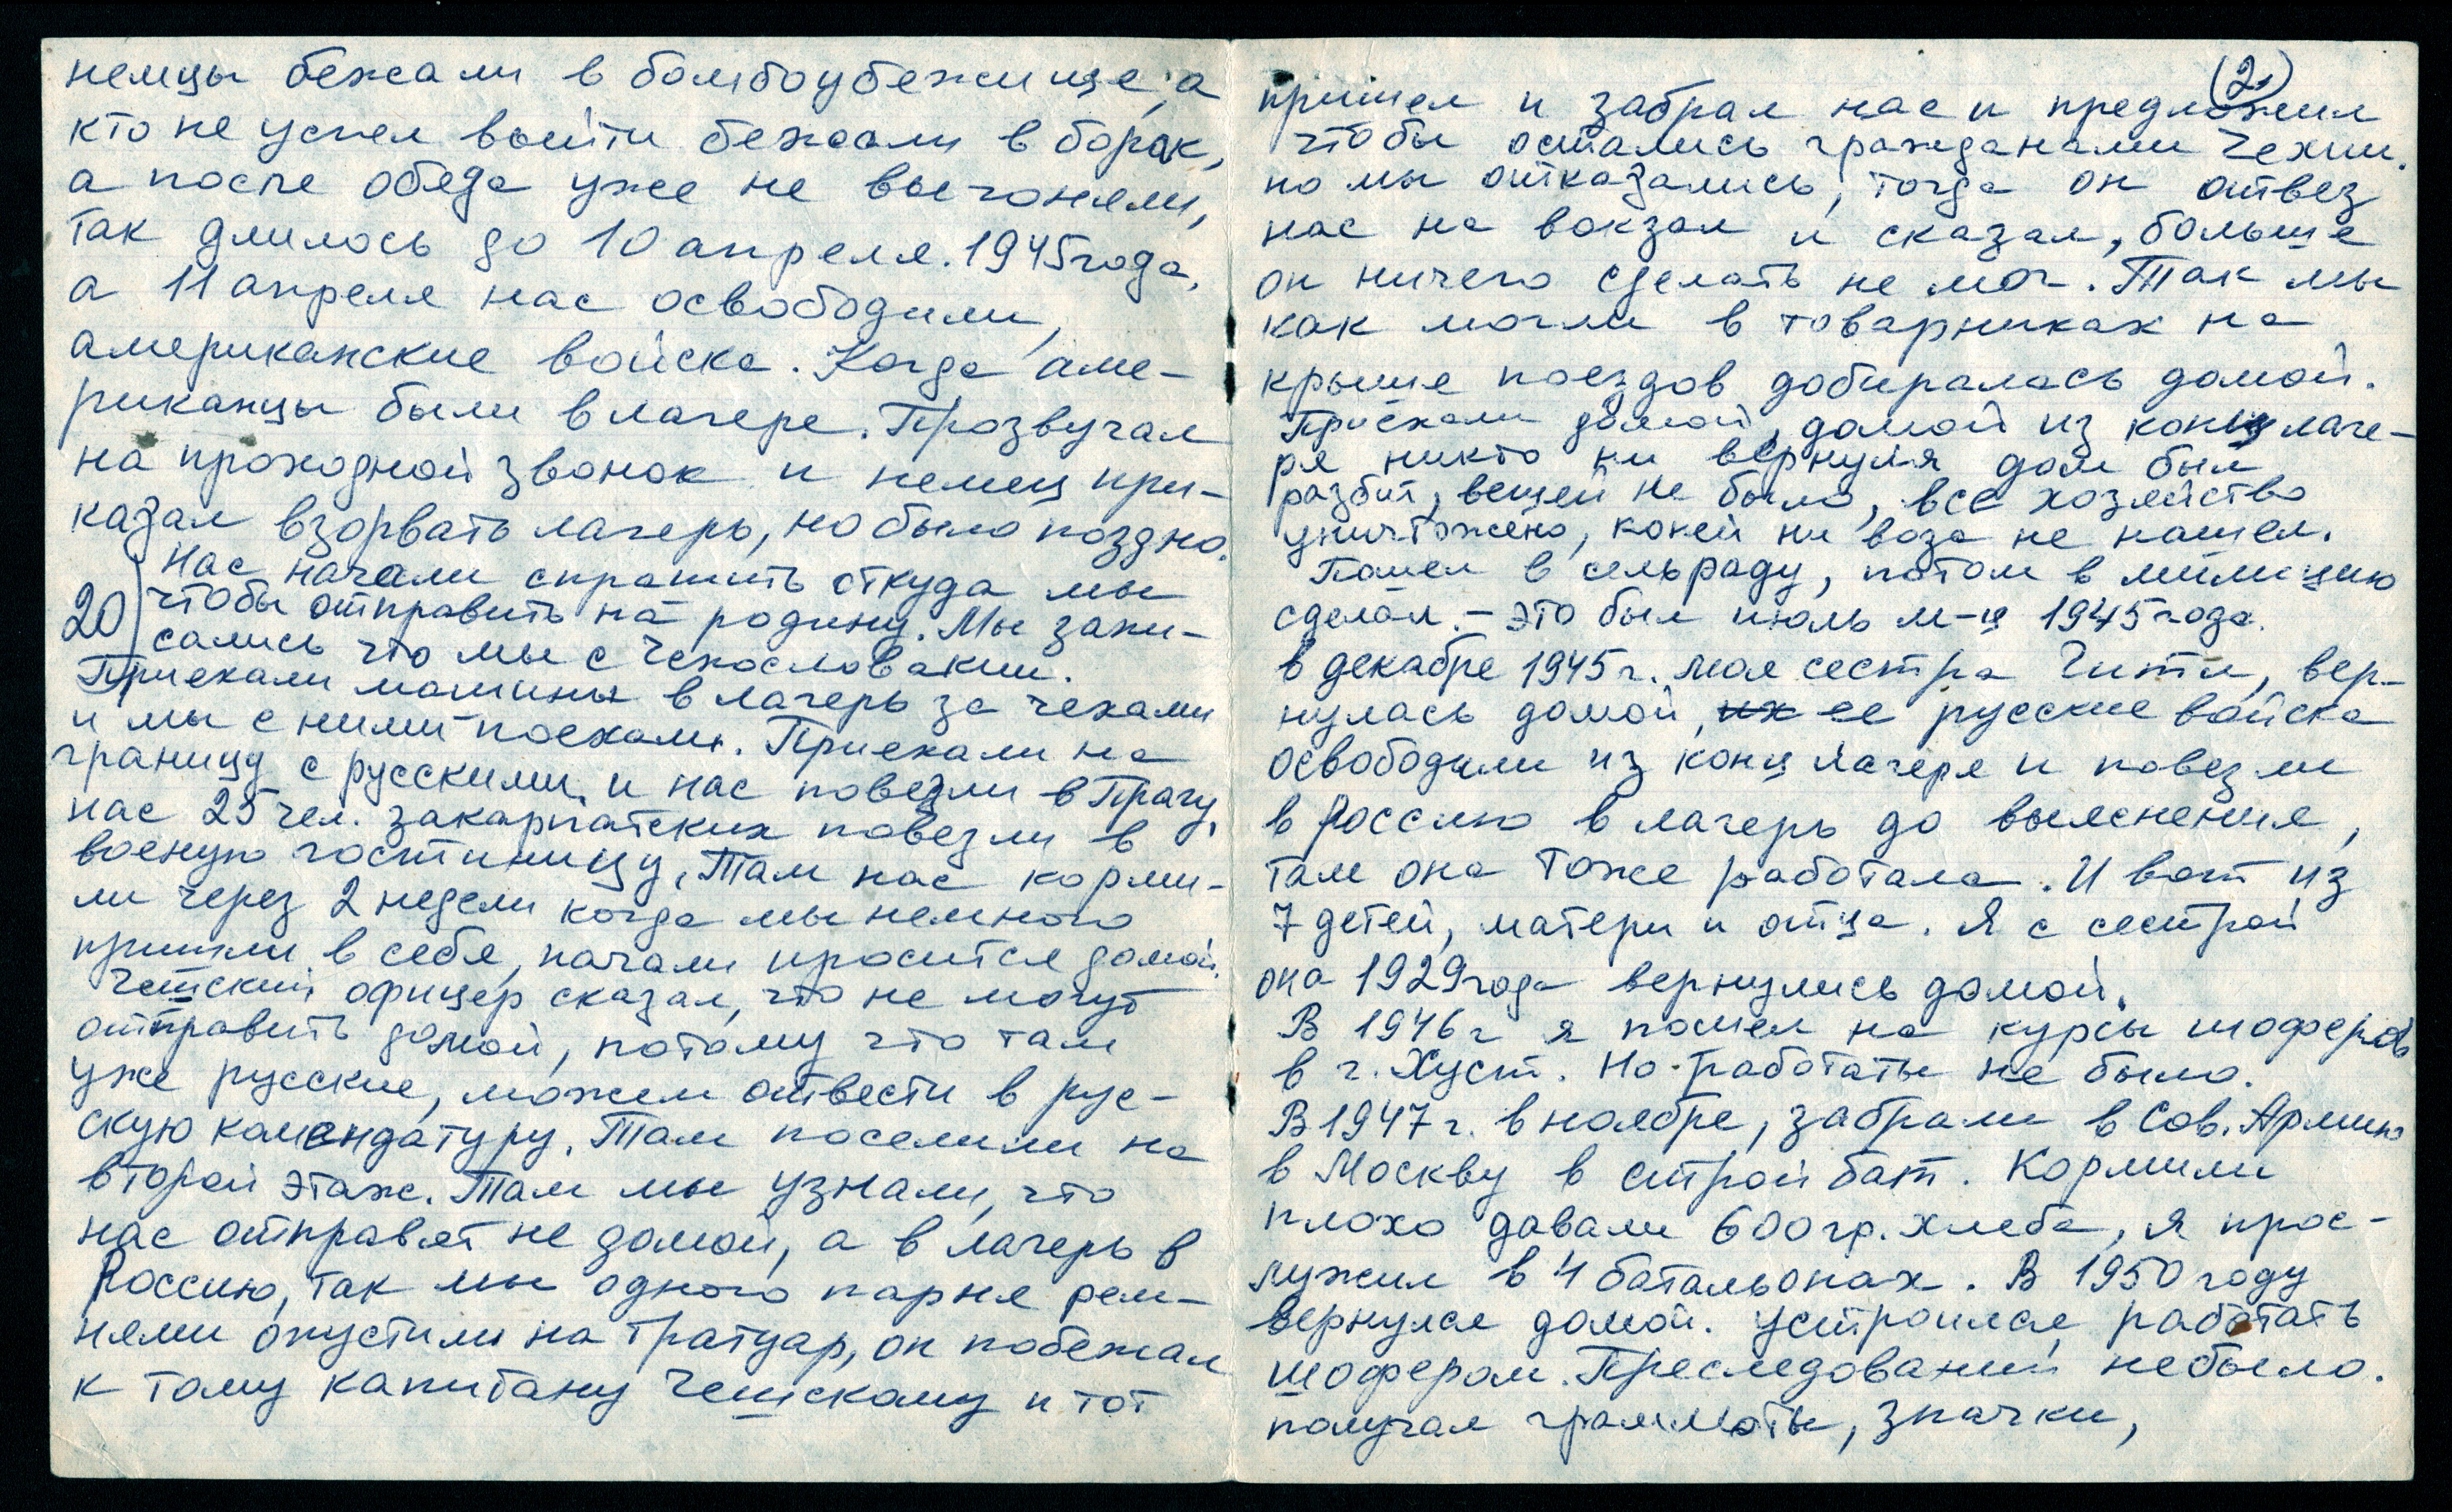 немцы бежали в бомбоубежище, а
кто не успел выйти бежали в борак,
а после обеда уже не выгоняли,
так длилось до 10 апреля. 1945 года,
а 11 апреля нас освободили,
американские войска. Когда аме-
риканцы были в лагере. Прозвучал
на проходной звонок и немец при-
казал взорвать лагерь, но было поздно.
Нас начали спрашить откуда мы
20) чтобы отправить на родину. Мы запи-
сались что мы с Чехословакии.
Приехали машины в лагерь за чехами
и мы с ними поехали. Приехали на
границу с русскими, и нас повезли в Прагу,
нас 25 чел. закарпатских повезли в
военую гостиницу, Там нас корми-
ли через 2 недели когда мы немного
пришли в себя, начали просится домой.
Чешский офицер сказал, что не могут
отправить домой, потому что там
уже русские, можем отвести в рус-
скую комендатуру. Там поселили на
второй этаж. Там мы узнали, что
нас отправят не домой, а в лагерь в
Россию, так мы одного парня рем-
нями опустили на тратуар, он побежал
к тому капитану Чешскому и тот
(2)
пришел и забрал нас и предложил
чтобы остались гражданами Чехии.
но мы отказались, тогда он отвез
нас на вокзал и сказал, больше
он ничего сделать не мог. Так мы
как могли в товарниках на
крыше поездов добиралась домой.
Приехали домой, домой из концлаге-
ря никто ни вернуля дом был
разбит, вещей не было, все хозяйство
уничтожено, коней ни воза не нашел.
Пошел в сельраду, потом в милицию
сделал. - это был июль м-ц 1945 года.
в декабре 1945 г. моя сестра Гитл, вер-
нулась домой, их ее русские войска
освободили из конц лагеря и повезли
в Россию в лагерь до выяснения,
там она тоже работала. И вот из
7 детей, матери и отца. Я с сестрой
она 1929 года вернулись домой.
В 1946 г я пошел на курсы шоферов
в г. Хуст. Но работаты не было.
В 1947 г. в ноябре, забрали в Сов. Армию
в Москву в строй бат. Кормили
плохо давали 600 гр. хлеба, я прос-
лужил в 4 батальонах. В 1950 году
вернулся домой. устроился работать
шофером. Преследований небыло.
получал граммоты, значки,